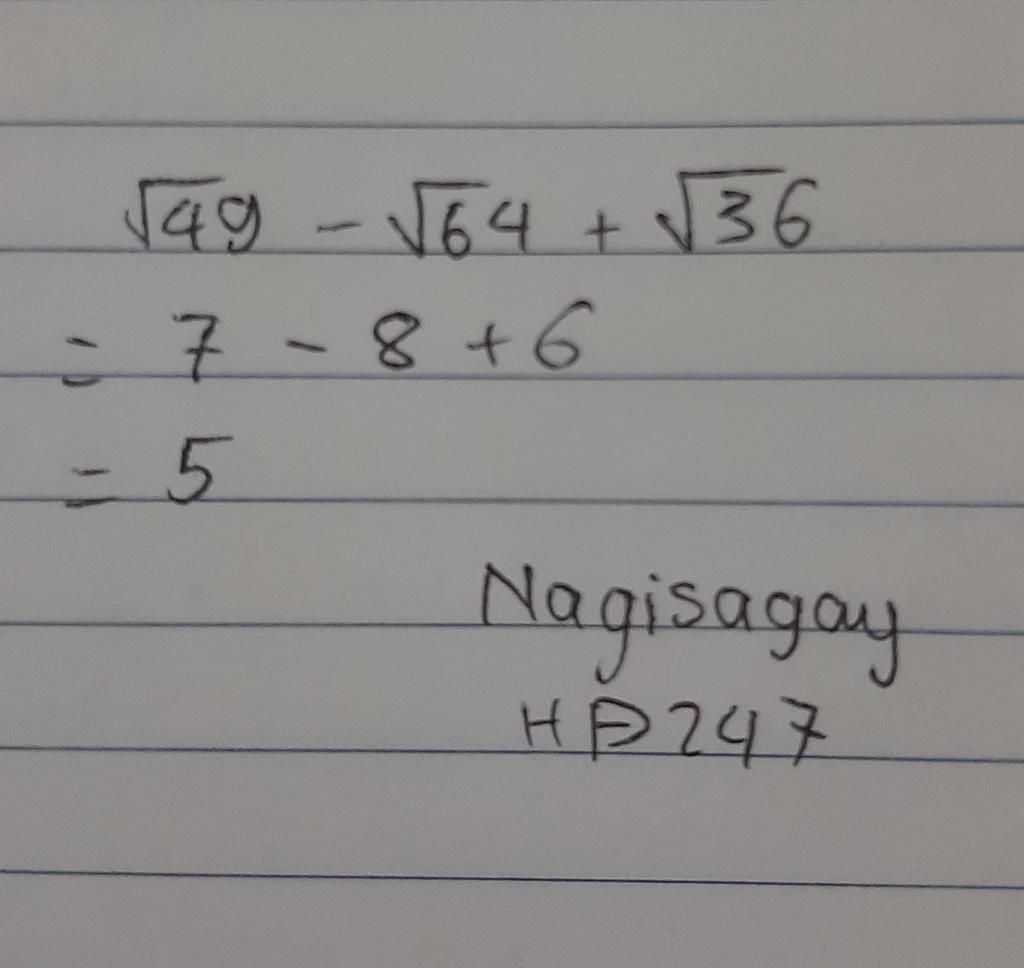 √49 - √64 + √36
= 7 - 8 + 6
= 5
Nagisagay
HD247